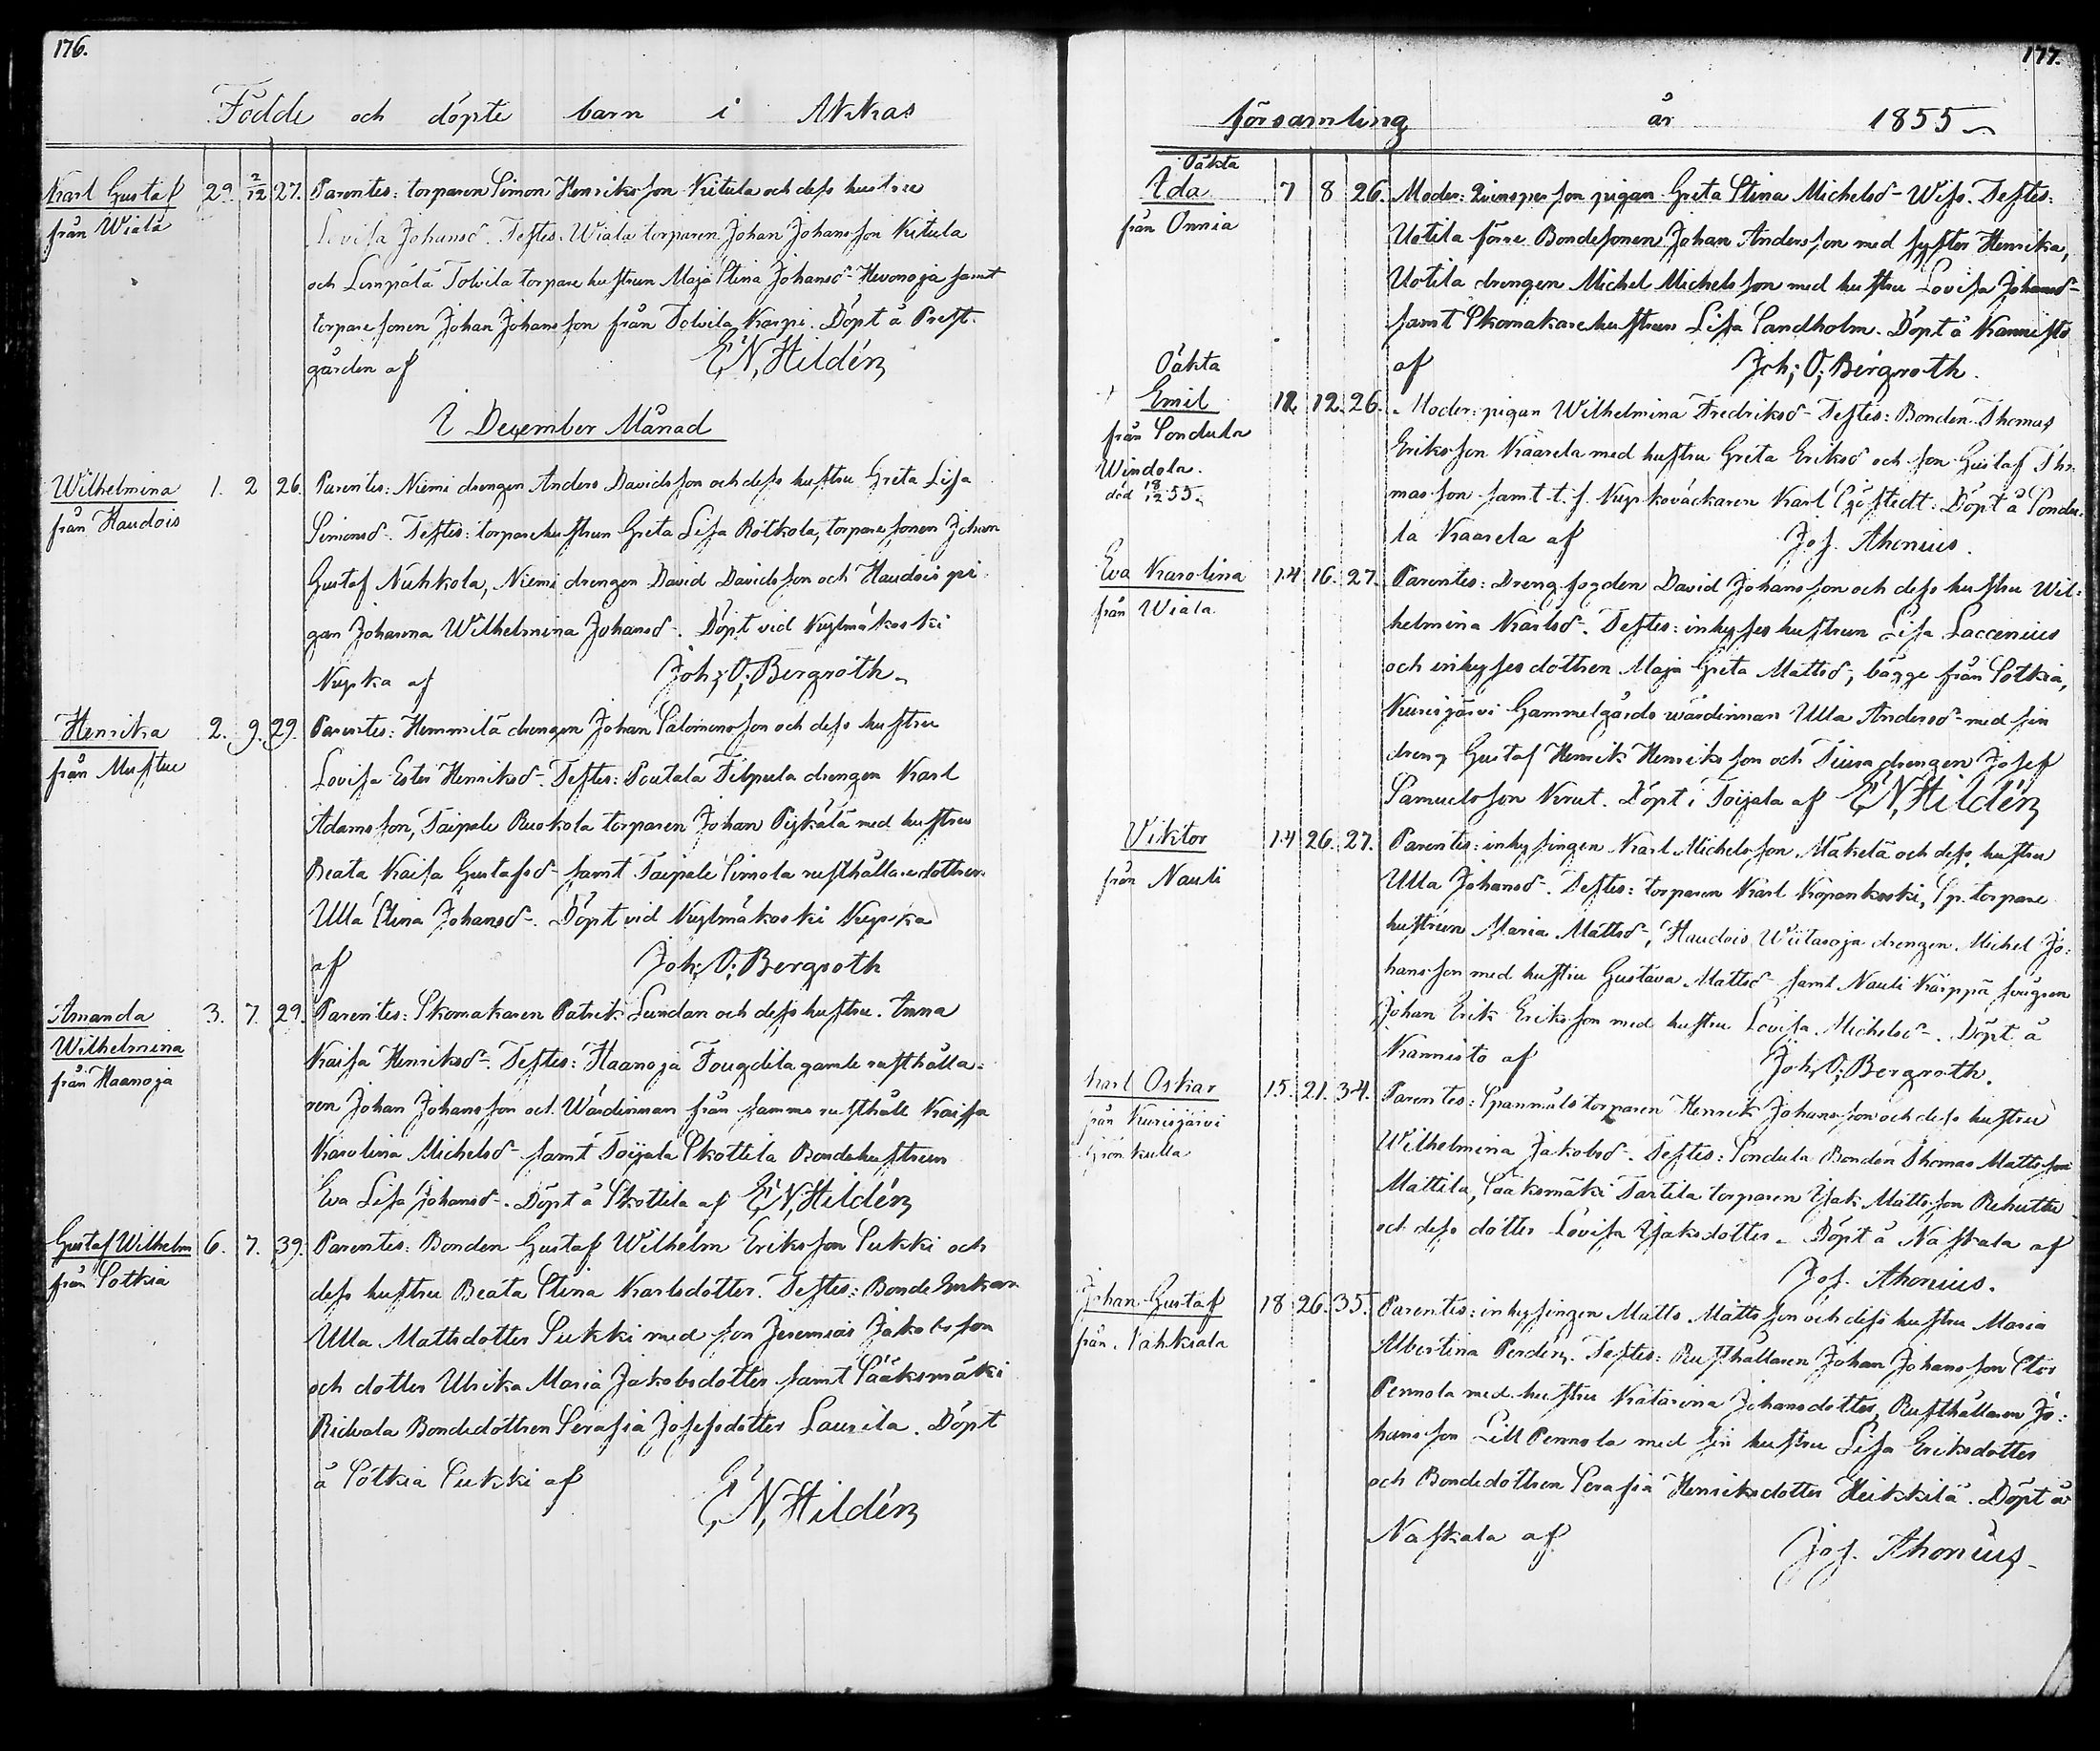 176.
Födde och döpte barn i Akkas
Karl Gustaf 29. 2/12 27. Parentes: torparen Simon Henriksson Kitula och dess hustru
från Wiala
Lovisa Johansd-. Testes: Wiala torparen Johan Johansson Kitula
och Lempälä Tolvila torpare hustrun Maja Stina Johansd- Hevonoja samt
torpare sonen Johan Johansson från Tolvila Karpi. Döpt å Prest-
gården af E, N, Hildén
I December Månad
Wilhelmina 1. 2 26. Parentes: Niemi drengen Anders Davidsson och dess hustru Greta Lisa
från Haudois
Simonsd-. Testes: torparehustrun Greta Lisa Rötkola, torpare sonen Johan
Gustaf Nuhkola, Niemi drengen David Davidsson och Haudois pi
gan Johanna Wilhelmina Johansd-. Döpt vid Kylmäkoski
Kyrka af Joh; O; Bergroth.
Henrika 2. 9. 29. Parentes: Hemmilä drengen Johan Salomonsson och dess hustru
från Mustue
Lovisa Ester Henriksd-. Testes: Poutala Filpula drengen Karl
Adamsson, Taipale Ruokola torparen Johan Pijkälä med hustru
Beata Kaisa Gustafsd- samt Taipale Simola rusthållaredottren
Ulla Stina Johansd-. Döpt vid Kylmäkoski Kyrka
af Joh; O; Bergroth
Amanda 3. 7. 29. Parentes: Skomakaren Patrik Lundan och dess hustru Anna
Wilhelmina
från Haanoja
Kaisa Henriksd-. Testes: Haanoja Fougdila gamle rusthålla-
ren Johan Johansson och Wärdinnan från samma rusthåll Kaisa
Karolina Michelsd- samt Toijala Skottila Bondehustrun
Eva Lisa Johansd-. Döpt å Skottila af E, N, Hildén
Gustaf Wilhelm 6. 7. 39. Parentes: Bonden Gustaf Wilhelm Eriksson Sukki och
från Sotkia
dess hustru Beata Stina Karlsdotter. Testes: Bonde Enkan
Ulla Mattsdotter Sukki med son Jeremias Jakobsson
och dotter Ulrika Maria Jakobsdotter samt Sääksmäki
Ridvala Bondedottren Serafia Josefsdotter Laurila. Döpt
å Sotkia Sukki af E, N, Hildén
177.
församling år 1855
Oäkta
Ida 7 8 26. Moder: Qvinsperson pigan Greta Stina Michelsd- Wiss. Testes:
från Onnia
Uotila förre Bondesonen Johan Andersson med syster Henrika,
Uotila drengen Michel Michelsson med hustru Lovisa Johansd-
samt Skomakarehustrun Lisa Sandholm. Döpt å Kannisto
af Joh; O; Bergroth.
Oäkta
Emil 12. 12. 26. Moder: pigan Wilhelmina Fredriksd- Testes: Bonden Thomas
från Sondula
Windola.
död 18/12 55.
Eriksson Kaarela med hustru Greta Eriksd och son Gustaf Tho
masson samt t.f. Kyrkoväckaren Karl Sjöstedt. Döpt å Sondu-
la Kaarela af Jos. Ahonius.
Eva Karolina 14 16. 27. Parentes: Drengfogden David Johansson och dess hustru Wil-
från Wiala
helmina Karlsd-. Testes: inhyses hustrun Lisa Laccenius
och inhyses dottren Maja Greta Mattsd-, bägge från Sotkia,
Kurisjärvi Gammelgårds wärdinnan Ulla Andersd- med sin
dreng Gustaf Henrik Henriksson och Tiura drengen Josef
Samuelsson Knut. Döpt i Toijala af E, N, Hildén
Viktor 14 26. 27. Parentes: inhysingen Karl Michelsson Mäkelä och dess hustru
från Nauli
Ulla Johansd-. Testes: torparen Karl Kopankoski, Sp. torpare
hustrun Maria Mattsd-, Haudois Wiitasoja drengen Michel Jo-
hansson med hustru Gustava Mattsd- samt Nauli Kärppä sougren
Johan Erik Eriksson med hustru Lovisa Michelsd-. Döpt å
Kannisto af Joh; O; Bergroth.
Karl Oskar 15. 21. 34. Parentes: Spannmåls torparen Henrik Johansson och dess hustru
från Kurisjärvi
Grönkulla
Wilhelmina Jakobsd-. Testes: Sondula Bonden Thomas Mattsson
Mattila, Sääksmäki Tartila torparen Isak Mattsson Rehuttu
och dess dotter Lovisa Isaksdotter. Döpt å Naskala af
Jos. Ahonius.
Johan Gustaf 18. 26. 35. Parentes: inhysingen Matts Mattsson och dess hustru Maria
från Nahkiala
Albertina Perdén. Testes: Rusthållaren Johan Johansson Stor
Pennola med hustru Katarina Johansdotter, Rusthållaren Jo-
hansson Lill Pennola med sin hustru Lisa Eriksdotter
och Bondedottren Serafia Henriksdotter Heikkilä. Döpt å
Naskala af Jos. Ahonius